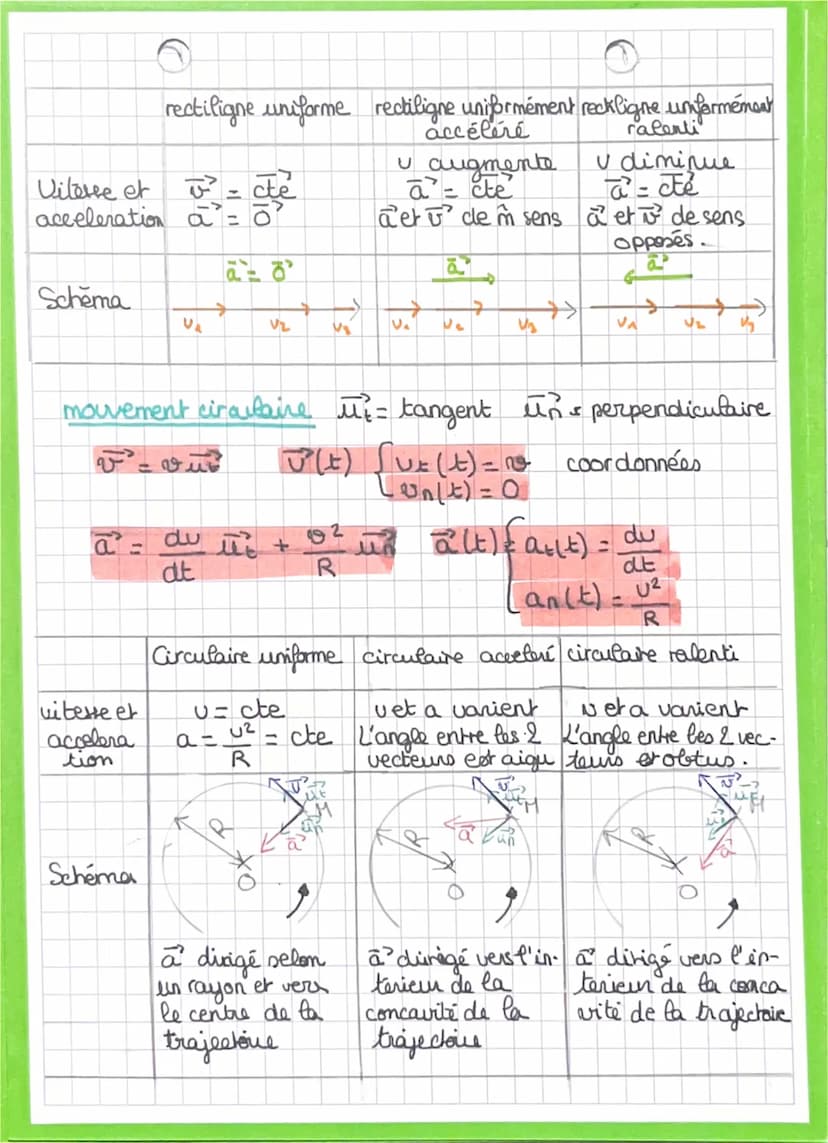 rectiligne uniforme
rectiligne uniformément accéléré
rectiligne uniformément ralenti
Vitesse et acceleration
v⃗ = cte⃗
a⃗ = 0⃗
v augmente
a⃗ = cte⃗
a⃗ et v⃗ de m̂ sens
v diminue
a⃗ = cte⃗
a⃗ et v⃗ de sens
opposés.
Schéma
a⃗ = 0⃗
v₁ v₂ v₃
a⃗
v₁ v₂ v₃
a⃗
v₁ v₂ v₃
mouvement circulaire u⃗t = tangent u⃗n = perpendiculaire
v⃗ = v u⃗t v⃗(t) { vt(t) = v coordonnées
vn(t) = 0
a⃗ = dv/dt u⃗t + v²/R u⃗n a⃗(t) = { at(t) = dv/dt
an(t) = v²/R
Circulaire uniforme
circulaire acceléré
circulaire ralenti
vitesse et
accelera
tion
v = cte
a = v²/R = cte
v et a varient
L'angle entre les 2
vecteurs est aigu
v et a varient
L'angle entre les 2 vec-
teurs est obtus.
Schéma
R O v⃗ u⃗t M u⃗n a⃗
R O v⃗ u⃗t M u⃗n a⃗
R O v⃗ u⃗t M u⃗n a⃗
a⃗ dirigé selon
un rayon et vers
le centre de la
trajectoire
a⃗ dirigé vers l'in-
terieur de la
concavité de la
trajectoire
a⃗ dirigé vers l'in-
terieur de la conca
vité de la trajectoire